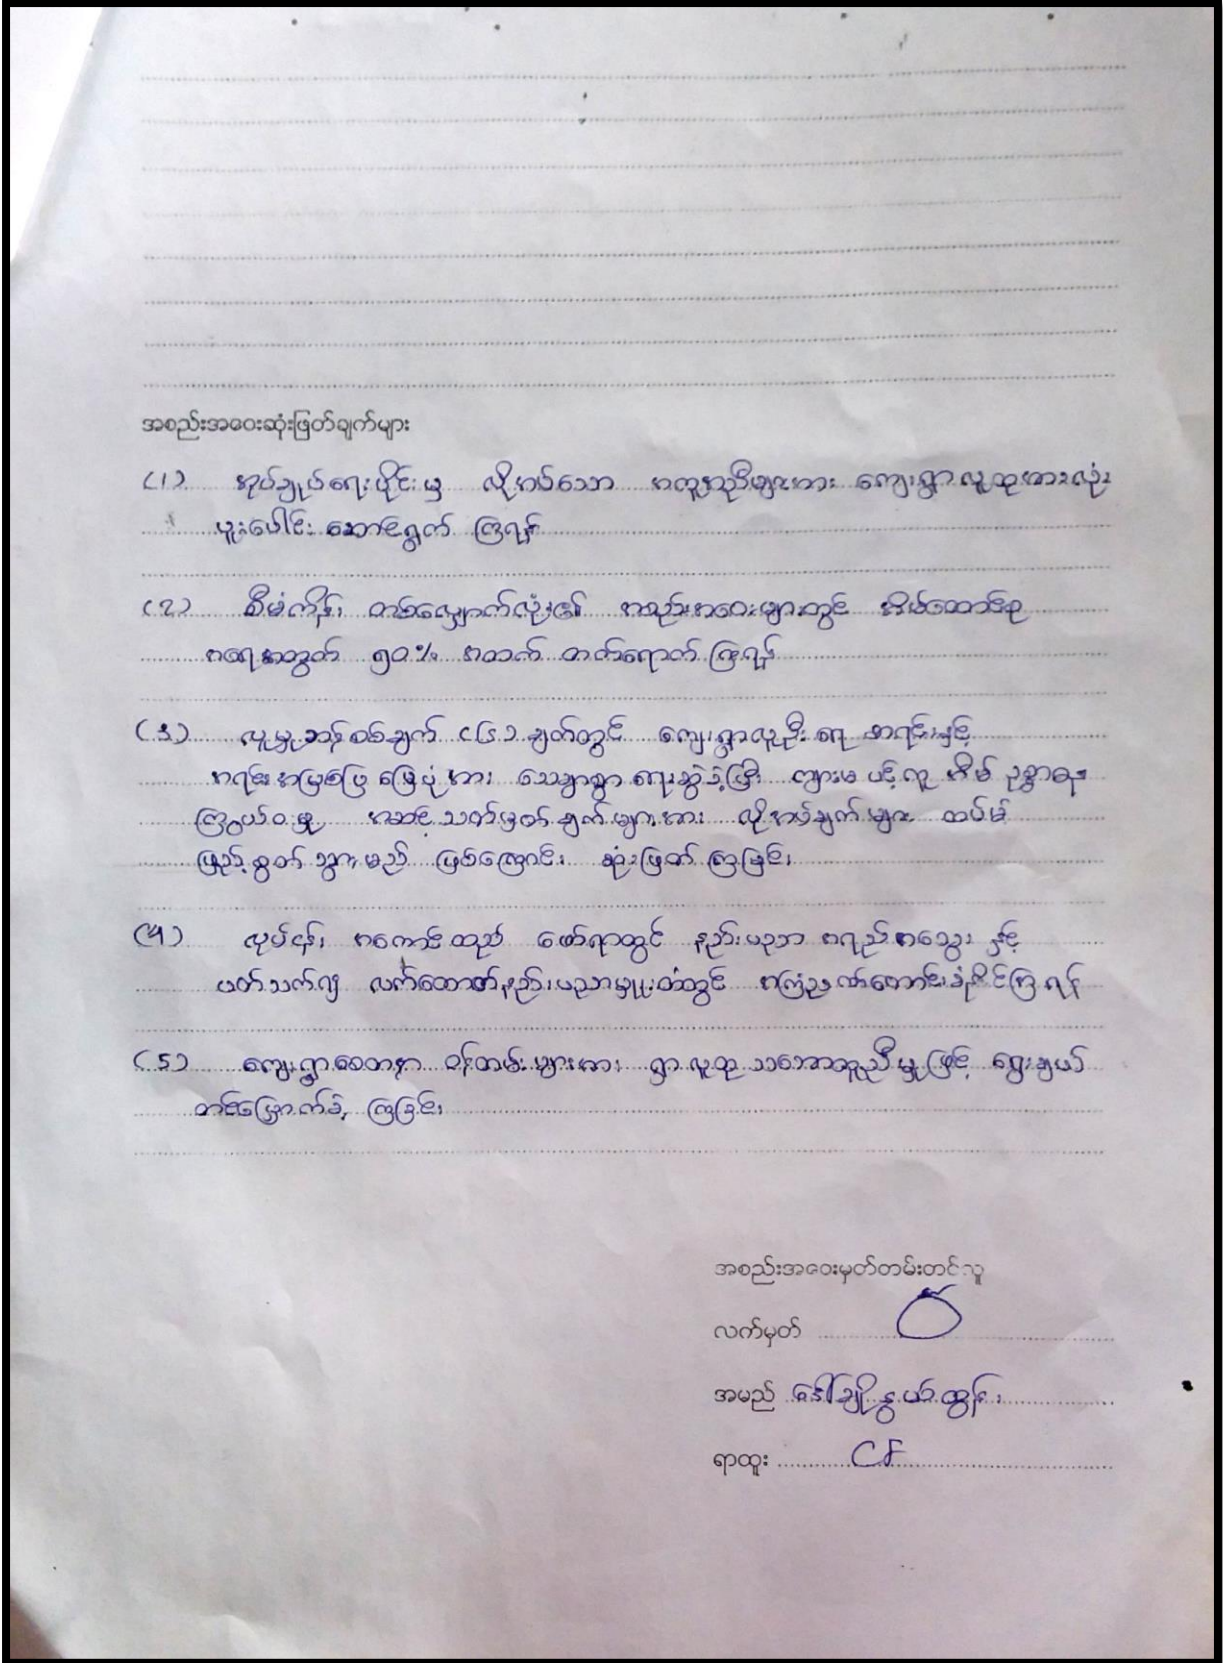 အစည်းအဝေးဆုံးဖြတ်ချက်များ
(၁) အုပ်ချုပ်ရေးပိုင်းမှ လိုအပ်သော အကူအညီများအား ကျေးရွာလူထုအားလုံး
ပူးပေါင်း ဆောင်ရွက် ကြရန်
(၂) စီမံကိန်း တစ်လျှောက်လုံး၏ အစည်းအဝေးများတွင် အိမ်ထောင်စု
အရေအတွက် ၅၀% အထက် တက်ရောက် ကြရန်
(၃) လူမှုဆန်းစစ်ချက် ကျေးရွာလူဦးရေ စာရင်းနှင့်
အား သေချာစွာ ရေးဆွဲခဲ့ပြီး ကျားမ အိမ် ဥစ္စာဓန
ကြွယ်ဝမှု အဆင့်သတ်မှတ်ချက်များအား လိုအပ်ချက်များ ထပ်မံ
ဖြည့်စွက် သွားမည် ဖြစ်ကြောင်း ဆုံးဖြတ် ကြခြင်း
(၄) လုပ်ငန်း အကောင်အထည် ဖော်ရာတွင် နည်းပညာ အရည်အသွေး နှင့်
ပတ်သက်၍ လက်ထောက်နည်းပညာမှူးထံတွင် အကြံဉာဏ်တောင်းခံနိုင်ကြရန်
(၅) ကျေးရွာစေတနာ့ ဝန်ထမ်းများအား ရွာလူထု သဘောတူညီမှုဖြင့် ရွေးချယ်
တင်မြှောက်ခဲ့ ကြခြင်း
အစည်းအဝေးမှတ်တမ်းတင်သူ
လက်မှတ်
အမည် ဒေါ်ချိုနွယ်ထွန်း
ရာထူး CF